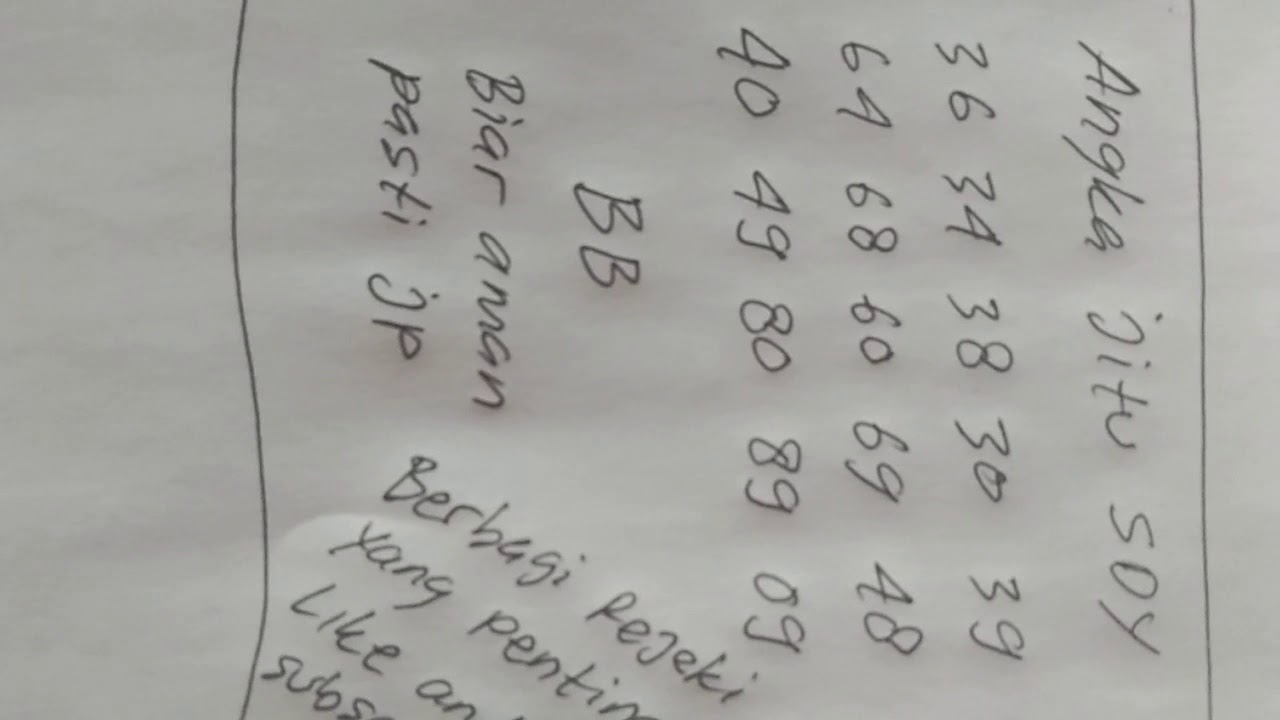 Angka jitu SDY
36 34 38 30 39
64 68 60 69 48
40 49 80 89 09
BB
Biar aman
pasti jp
Berbagi rejeki
yang pentin
Like an
subs